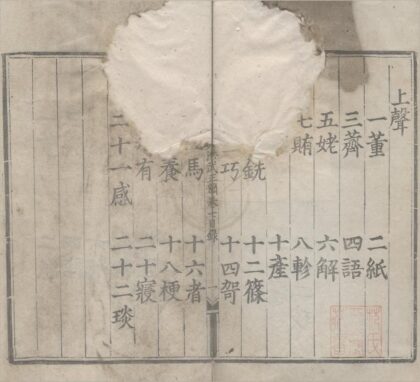 上聲
一董 二紙
三薺 四語
五姥 六解
七賄 八軫
十產
銑 十二篠
巧 十四哿
武正韻
馬 十六者
養 十八梗
有 二十寢
二十一感 二十二琰